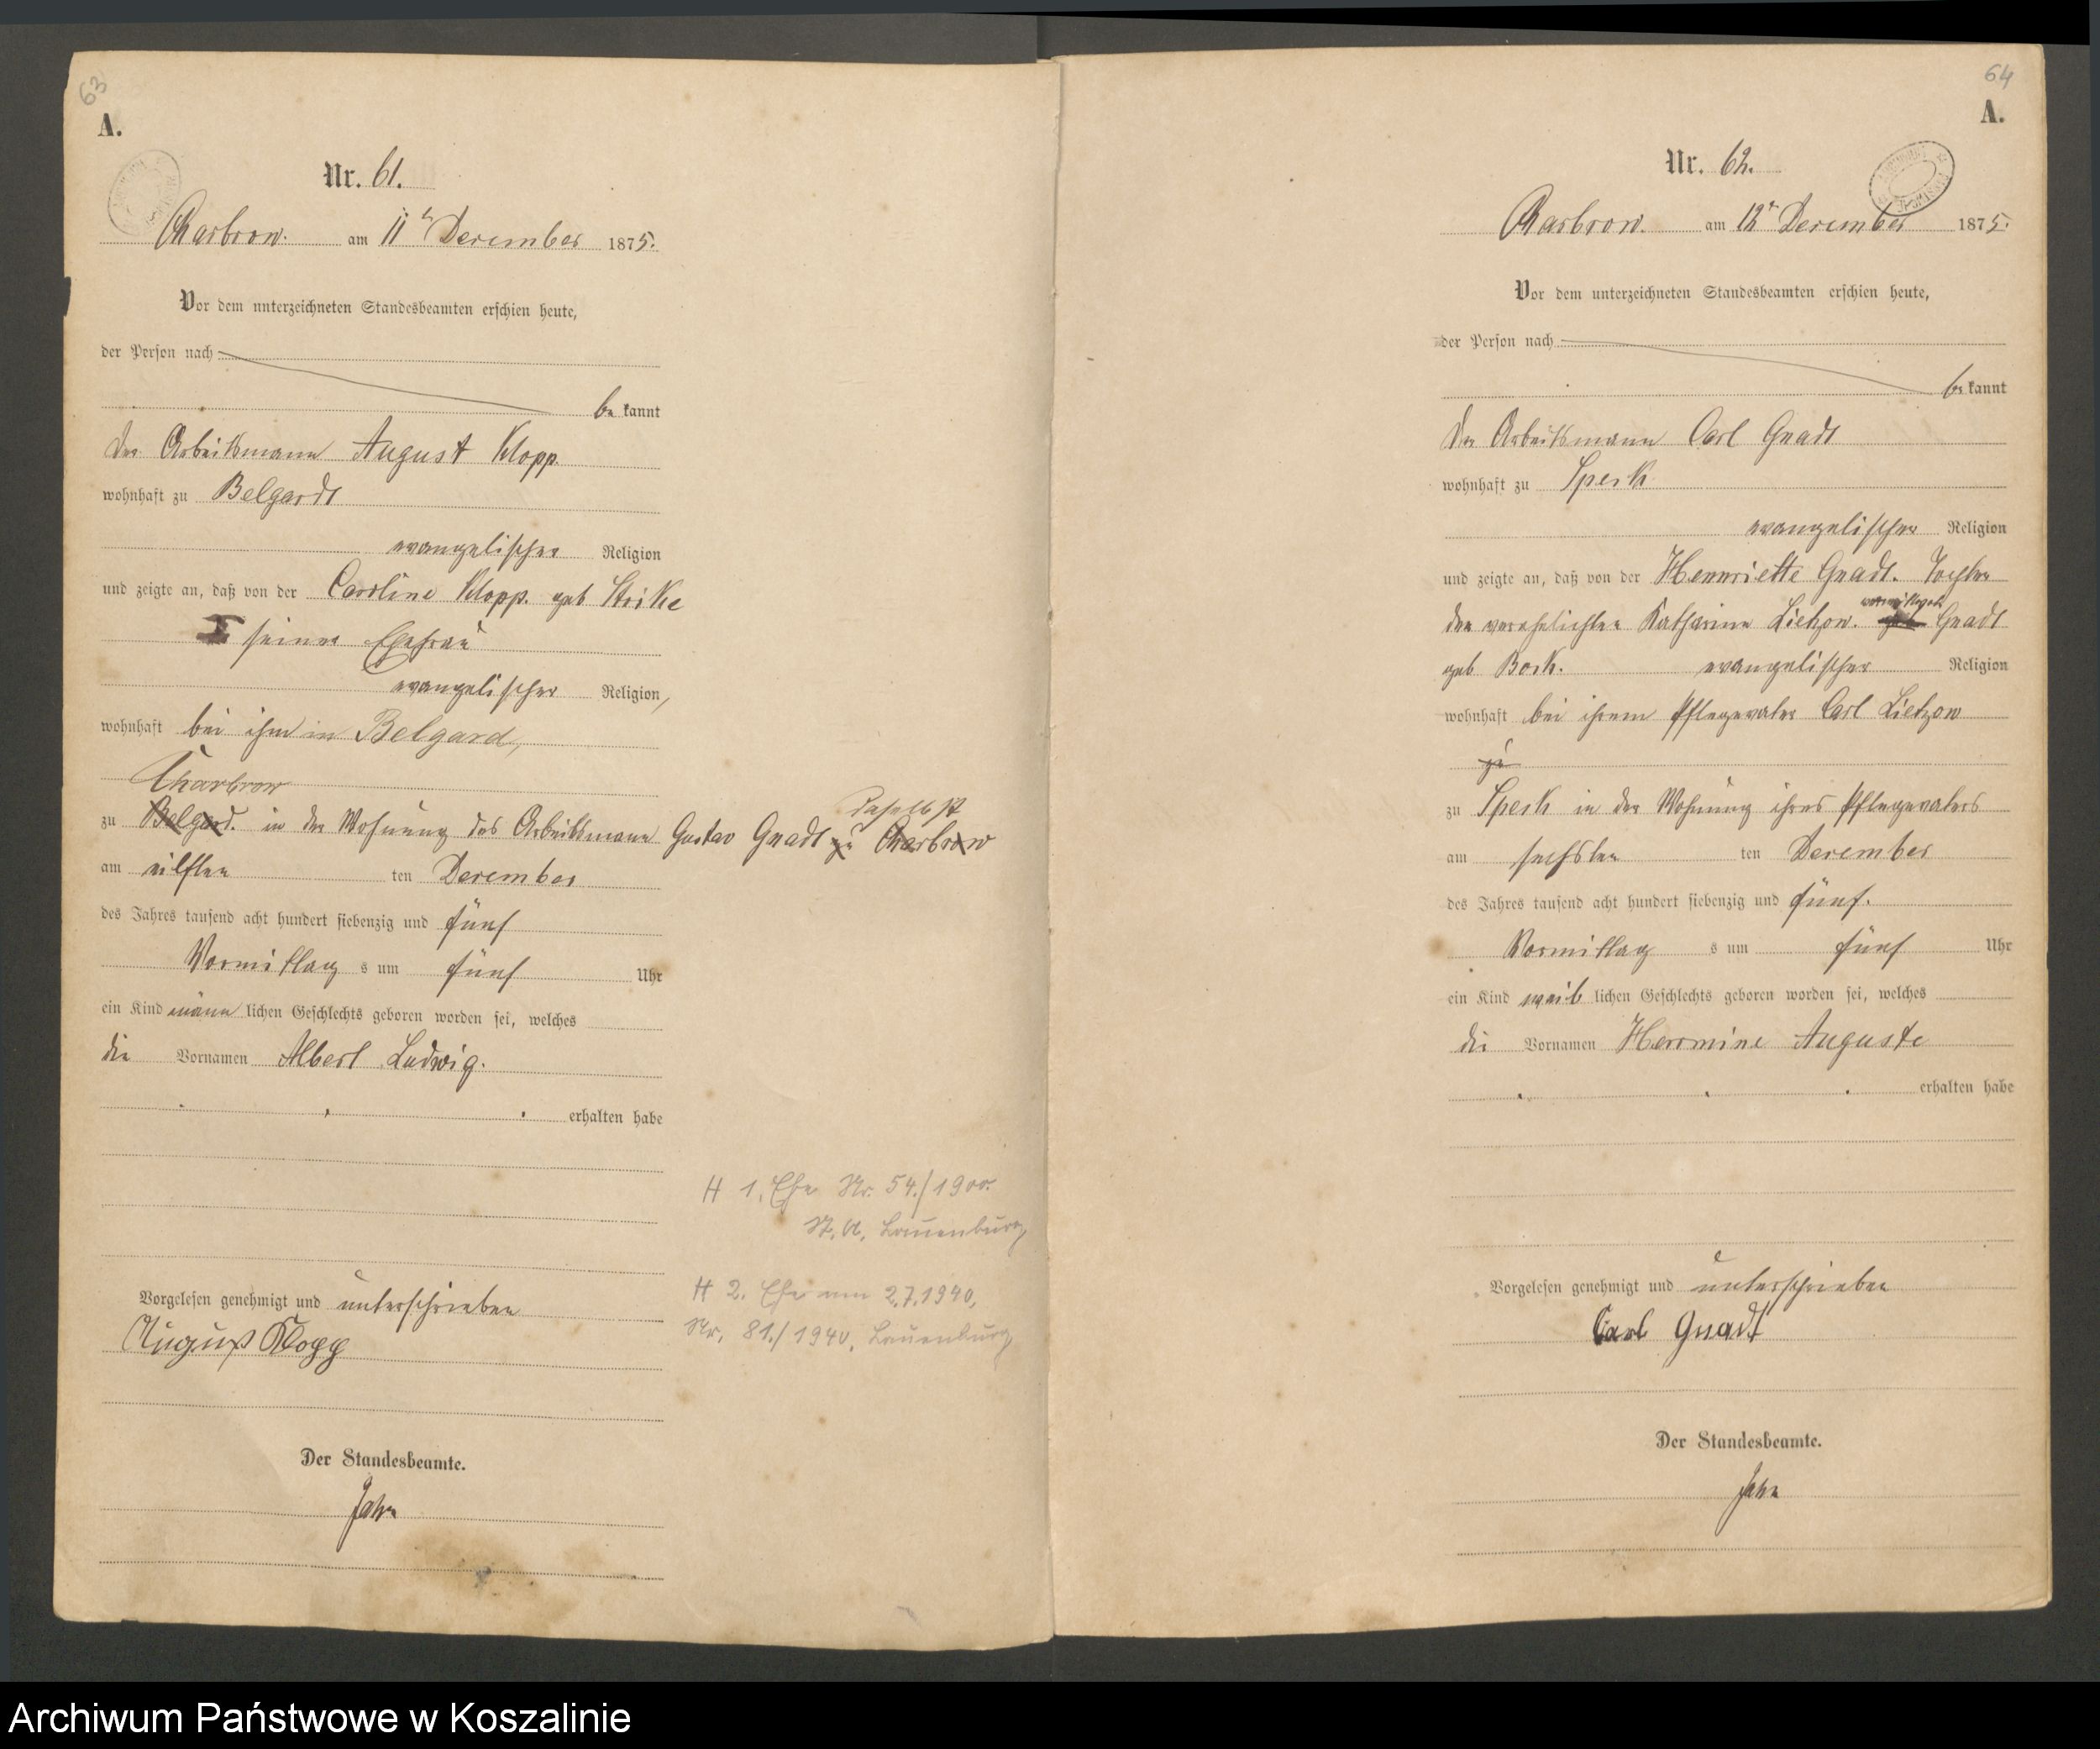 63
A.
Nr. 61.
Charbrow. am 11t December 1875.
Vor dem unterzeichneten Standesbeamten erschien heute,
der Person nach
be kannt
der Arbeitsmann August Klopp
wohnhaft zu Belgard
evangelischer Religion
und zeigte an, daß von der Caroline Klopp. geb Strike
seiner Ehefrau
evangelischer Religion,
wohnhaft bei ihm in Belgard,
Charbrow
daselbst
zu Belgard. in der Wohnung des Arbeitsmann Gustav Gnadt zu Charbrow
am eilften ten December
des Jahres tausend acht hundert siebenzig und fünf
Vormittag s um fünf Uhr
ein Kind männ lichen Geschlechts geboren worden sei, welches
die Vornamen Albert Ludwig.
erhalten habe
H 1. Ehe Nr. 54./1900.
St. A. Lauenburg
Vorgelesen genehmigt und unterschrieben
August Klopp
H 2. Ehe am 2.7.1940,
Nr. 81./1940. Lauenburg
Der Standesbeamte.
Jahn
64
A.
Nr. 62.
Charbrow. am 12t December 1875.
Vor dem unterzeichneten Standesbeamten erschien heute,
der Person nach
be kannt
der Arbeitsmann Carl Gnadt
wohnhaft zu Speck
evangelischer Religion
und zeigte an, daß von der Henriette Gnadt. Tochter
der verehelichten Katharine Lietzow. verwittwet Gnadt
geb Bock. evangelischer Religion
wohnhaft bei ihrem Pflegevater Carl Lietzow
zu
zu Speck in der Wohnung ihres Pflegevaters
am sechsten ten December
des Jahres tausend acht hundert siebenzig und fünf.
Vormittag s um fünf Uhr
ein Kind weib lichen Geschlechts geboren worden sei, welches
die Vornamen Hermine Auguste
erhalten habe
Vorgelesen genehmigt und unterschrieben
Carl Gnadt
Der Standesbeamte.
Jahn
Archiwum Państwowe w Koszalinie